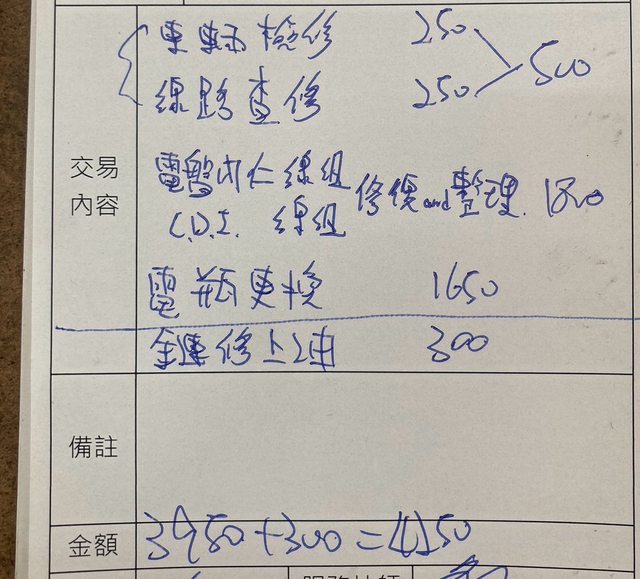 車輛檢修 250
線路查修 250 500
交易
內容
電盤內仁線組 修復and整理. 1800
C.D.I. 線組
電瓶更換 1650
修上 300
備註
金額 3950+300=4150